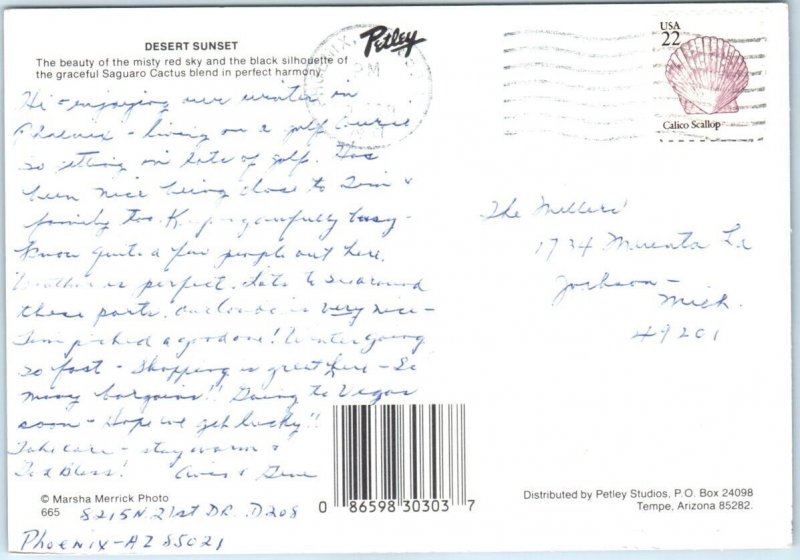 DESERT SUNSET
The beauty of the misty red sky and the black silhouette of
the graceful Saguaro Cactus blend in perfect harmony.
Petley
PM
USA
22
Calico Scallop
Hi - enjoying our winter in
Phoenix - living on a golf course
so getting in lots of golf. Has
been nice being close to &
family too. Keeping awfully busy -
Know quite a few people out here.
Weather is perfect. Lots to see around
these parts. Our condo is very nice -
picked a good one! Winter going
so fast - Shopping is great here - So
many bargains!! Going to Vegas
soon - Hope we get lucky!!
Take care - stay warm &
God Bless! & Gene
The Millers'
1734 La
Jackson -
Mich.
49201
© Marsha Merrick Photo
665
8215 N 21st DR. D208
Phoenix - AZ 85021
0 86598 30303 7
Distributed by Petley Studios, P.O. Box 24098
Tempe, Arizona 85282.